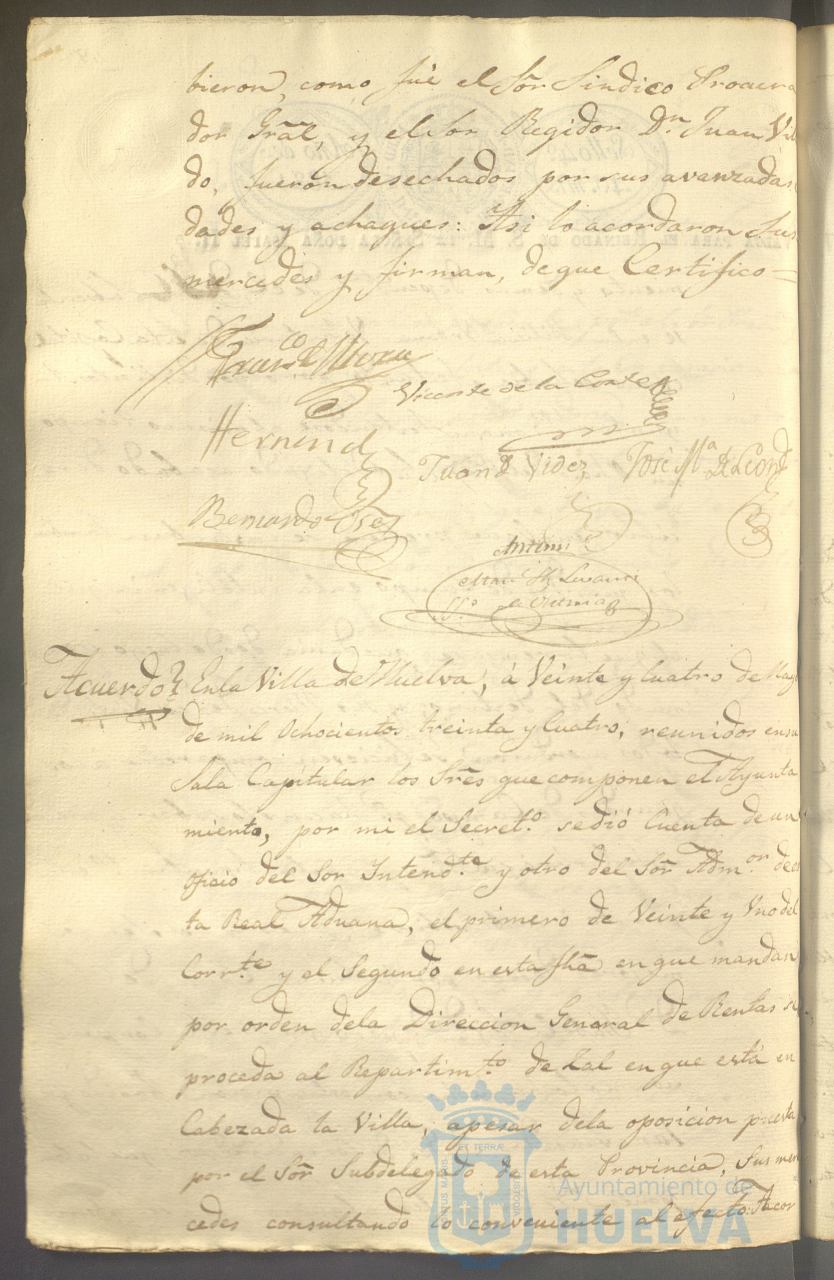 bieron, como fué el Sõr Sindico Procura
dor Grãl, y el Sor Regidor Dn Juan Vi
do, fueron desechados por sus avanzadas
dades y achaques: Asi lo acordaron sus
mercedes y firman, de que Certifico =
Vicente de la Corte
Juan Videz José Ma. de Leon
Bernardo
Antemi
Acuerdo En la Villa de Huelva, á Veinte y Cuatro de May
de mil Ochocientos treinta y Cuatro, reunidos en su
Sala Capitular los Sres que componen el Ayunta
miento, por mi el Secret.o se dió Cuenta de un
oficio del Sor Intend.te y otro del Sõr Adm.or de es
ta Real Aduana, el primero de Veinte y Uno del
Corr.te y el Segundo en esta fhã en que mandan
por orden dela Direccion General de Rentas se
proceda al Repartim.to de Sal en que está en
Cabezada la Villa, apesar dela oposicion puesta
por el Sõr Subdelegado de esta Provincia, Sus mer
cedes consultando lo conveniente al efecto: Acor
Ayuntamiento de
HUELVA